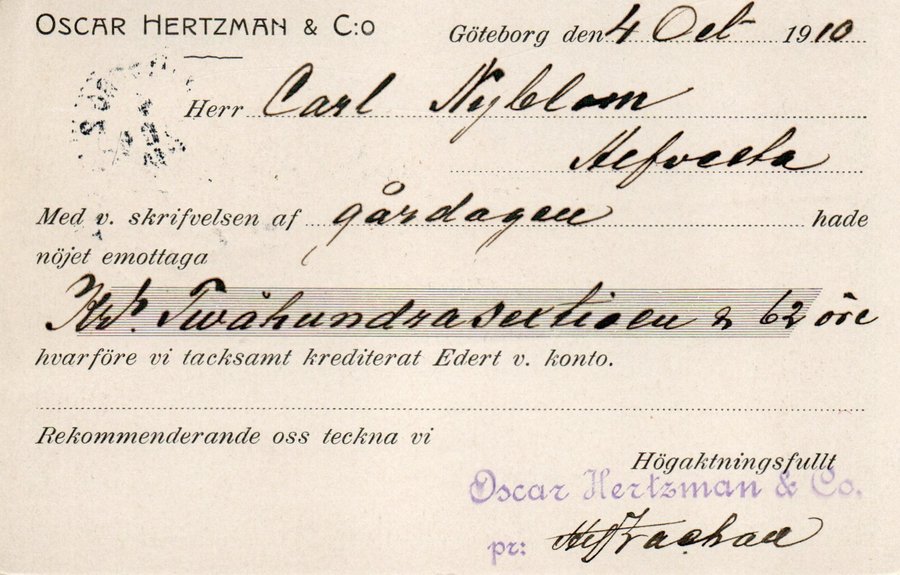 OSCAR HERTZMAN & C:O
Göteborg den 4 Oct 1910
Herr Carl Nyblom
Alfvesta
Med v. skrifvelsen af gårdagen hade
nöjet emottaga
Kr. Twåhundrasextioen & 62 öre
hvarföre vi tacksamt krediterat Edert v. konto.
Rekommenderande oss teckna vi
Högaktningsfullt
Oscar Hertzman & Co.
pr: